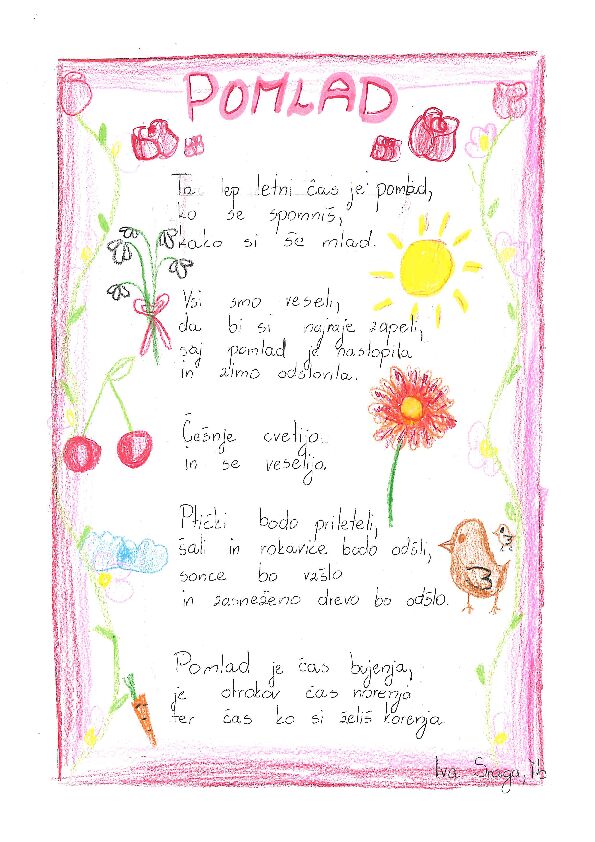 POMLAD
Ta lep letni čas je pomlad,
ko se spomniš,
kako si še mlad.
Vsi smo veseli,
da bi si najraje zapeli,
saj pomlad je nastopila
in zimo odslovila.
Češnje cvetijo
in se veselijo.
Ptički bodo prileteli,
šali in rokavice bodo odšli,
sonce bo vzšlo
in zasneženo drevo bo odšlo.
Pomlad je čas bujenja,
je otrokov čas norenja
ter čas ko si želiš korenja
Iva Sraga, 7.b